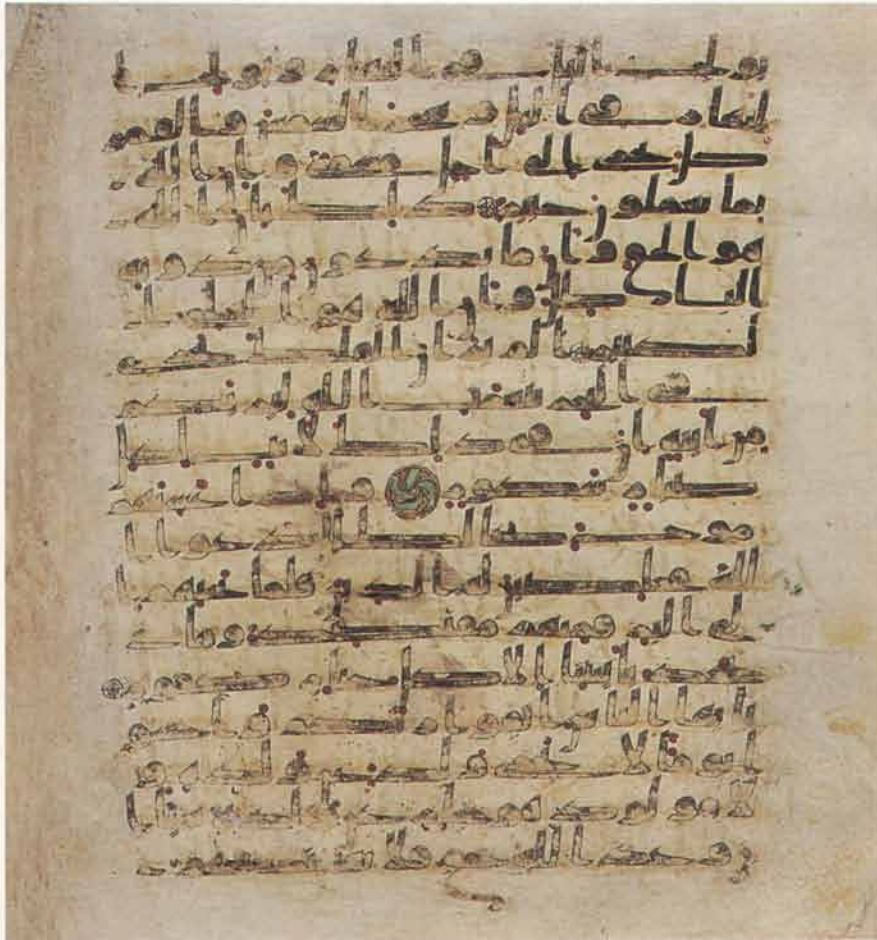 يولج اليل في النهار و يولج ا
لنهار في اليل و سخر الشمس و القمر
كل يجري الى اجل مسمى و ان الله
بما تعملون خبير ذلك بان الله
هو الحق و ان ما يدعون من دونه
البطل و ان الله هو العلي ا
لكبير الم تر ان الفلك تجر
ي في البحر بنعمت الله ليريكم
من ايته ان في ذلك لايت لكل
صبار شكور و اذا غشيهم
موج كالظلل دعوا ا
لله مخلصين له الدين فلما نجيهم ا
لى البر فمنهم مقتصد و ما يـ
جحد بايتنا الا كل ختار كفور
يايها الناس اتقوا ربكم و ا
خشوا يوما لا يجزي والد عن ولده و
لا مولود هو جاز عن والده شيا ا
ن وعد الله حق فلا تغرنكم